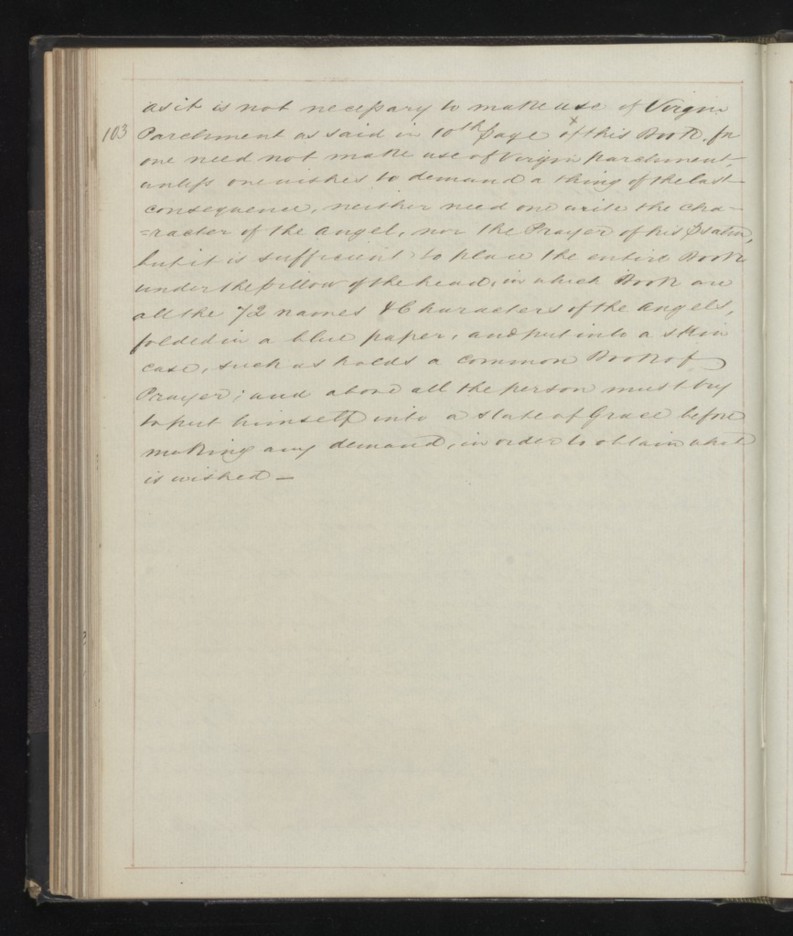 as it is not necessary to make use of Virgin
103 Parchment as said in 10th Page x of this Book. for
one need not make use of Virgin parchment
unless one wishes to demand a thing of the last
consequence, neither need one write the cha-
=racter of the Angel, nor the Prayer of his Psalm,
but it is sufficient to place the entire Book
under the pillow of the head, in which Book are
all the 72 names & Characters of the Angels,
folded in a blue paper, and put into a skin
case, such as holds a common Book of
Prayer; and above all the person must try
to put himself into a state of Grace before
making any demand, in order to obtain what
is wished —